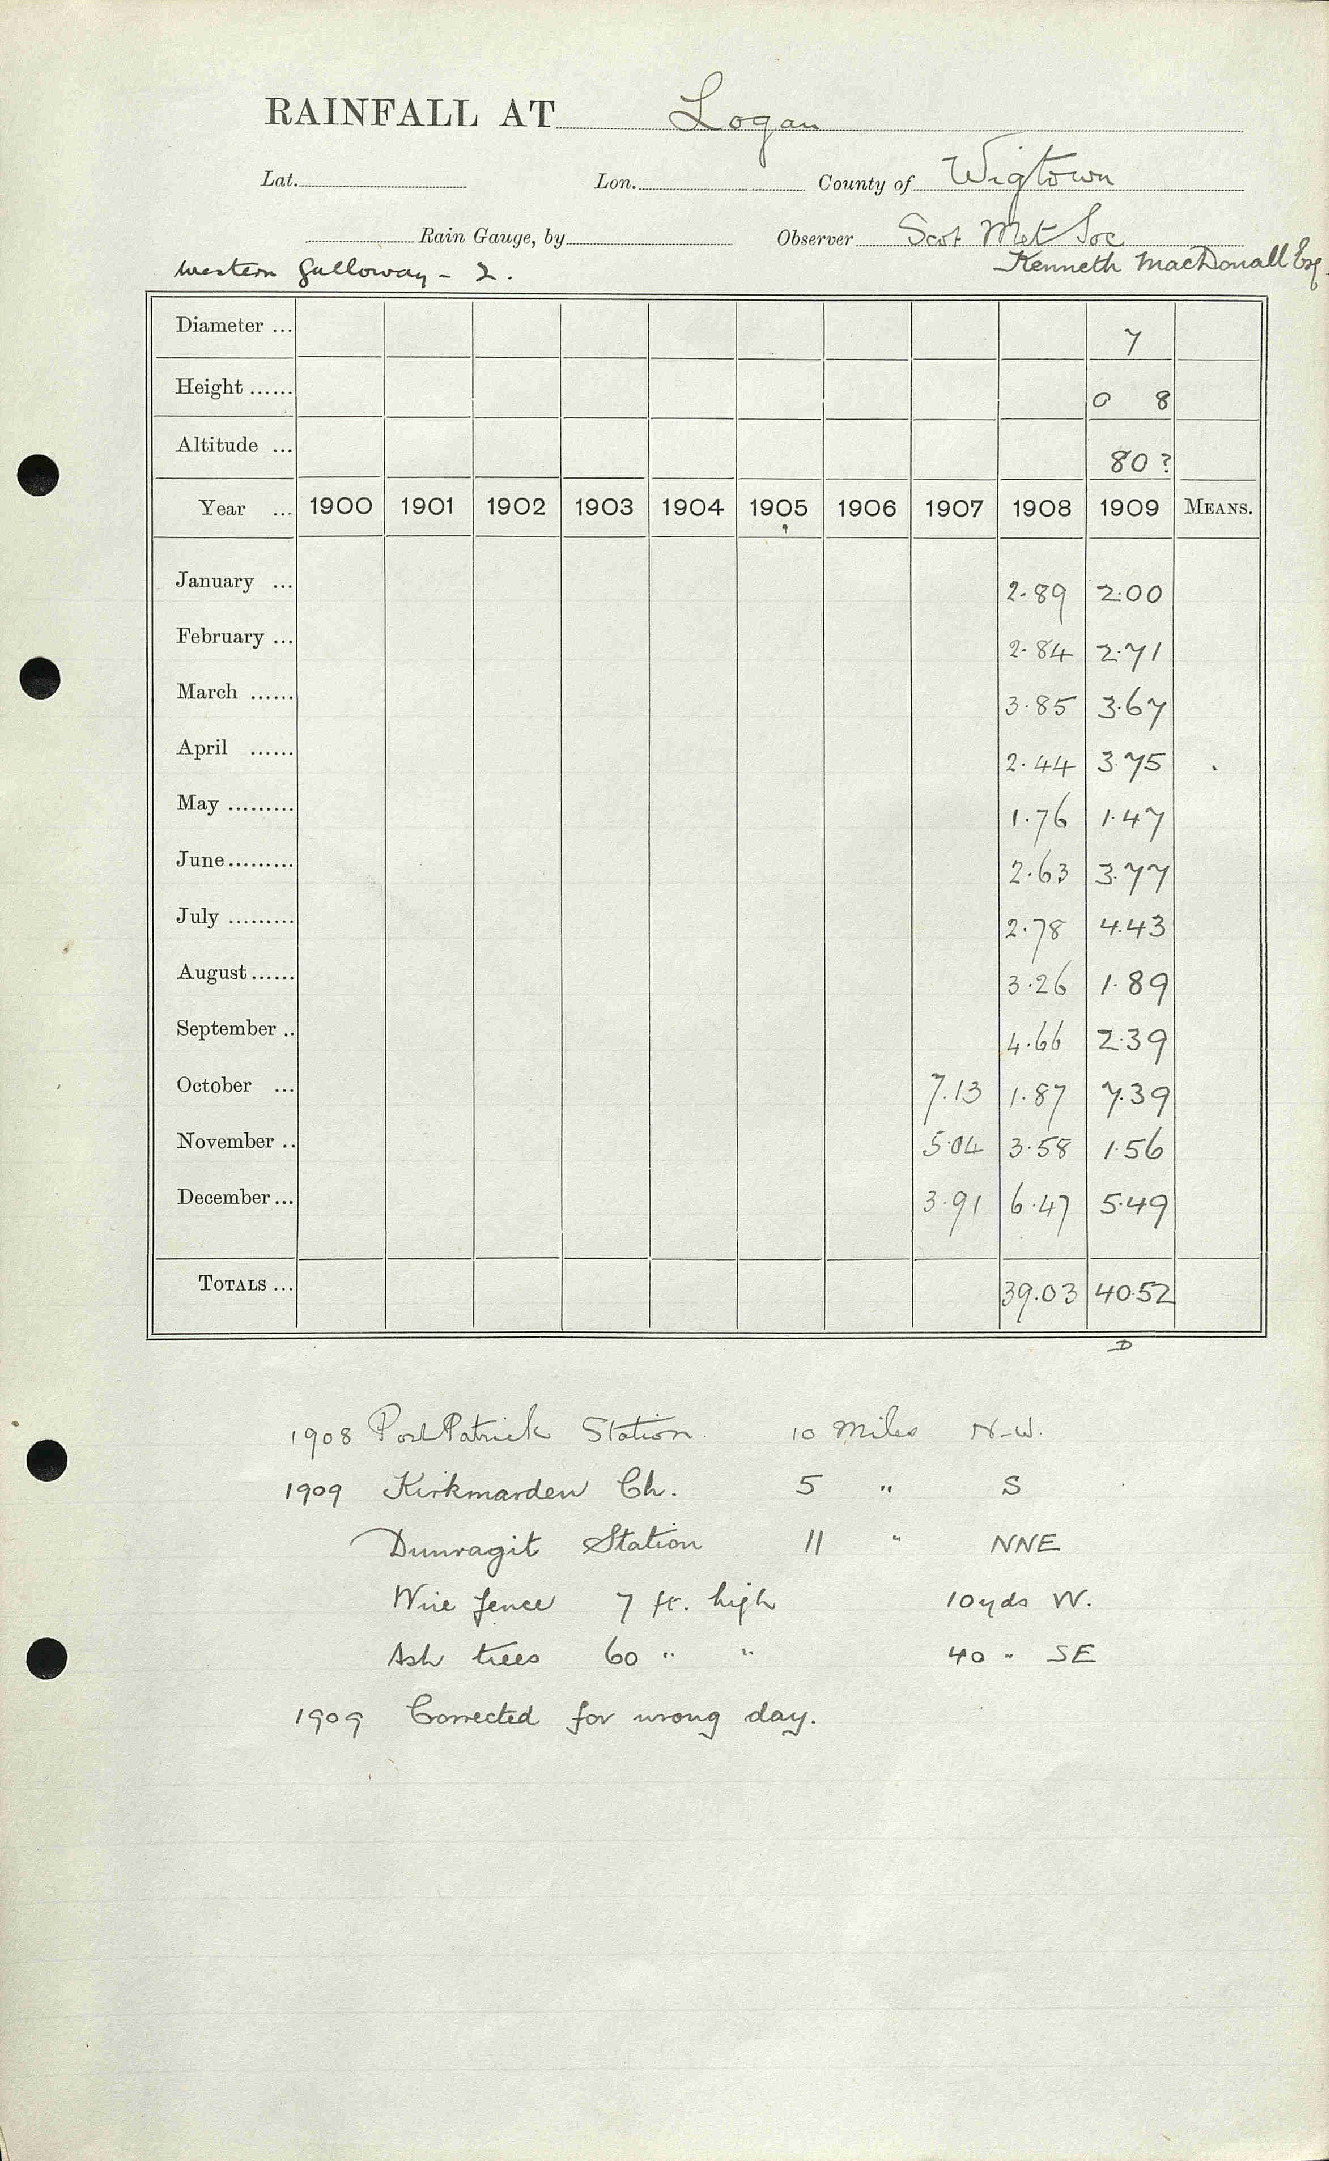 RAINFALL AT Logan
Lat. Lon. County of Wigtown
Rain Gauge, by Observer Scot Met Soc
Western Galloway - 2. Kenneth MacDouall Esq.
Diameter ... 7
Height ...... 0 8
Altitude ... 80?
Year ... 1900 1901 1902 1903 1904 1905 1906 1907 1908 1909 MEANS.
January ... 2.89 2.00
February ... 2.84 2.71
March ...... 3.85 3.67
April ...... 2.44 3.75
May ......... 1.76 1.47
June ......... 2.63 3.77
July ......... 2.78 4.43
August ...... 3.26 1.89
September .. 4.66 2.39
October ... 7.13 1.87 7.39
November .. 5.04 3.58 1.56
December ... 3.91 6.47 5.49
TOTALS ... 39.03 40.52
D
1908 PortPatrick Station 10 Miles N-W.
1909 Kirkmarden Ch. 5 " S
Dunragit Station 11 " NNE
Wire fence 7 ft. high 10 yds W.
Ash trees 60 " " 40 " SE
1909 Corrected for wrong day.